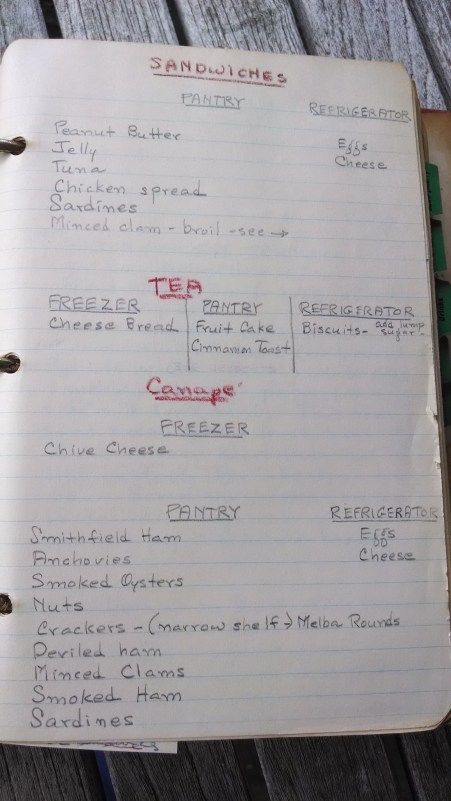 SANDWICHES
PANTRY REFRIGERATOR
Peanut Butter
Jelly Eggs
Tuna Cheese
Chicken spread
Sardines
Minced clam - broil - see →
TEA
FREEZER PANTRY REFRIGERATOR
Cheese Bread Fruit Cake Biscuits - add lump sugar
Cinnamon Toast
Canapé
FREEZER
Chive Cheese
PANTRY REFRIGERATOR
Smithfield Ham Eggs
Anchovies Cheese
Smoked Oysters
Nuts
Crackers - (narrow shelf → Melba Rounds
Deviled ham
Minced Clams
Smoked Ham
Sardines